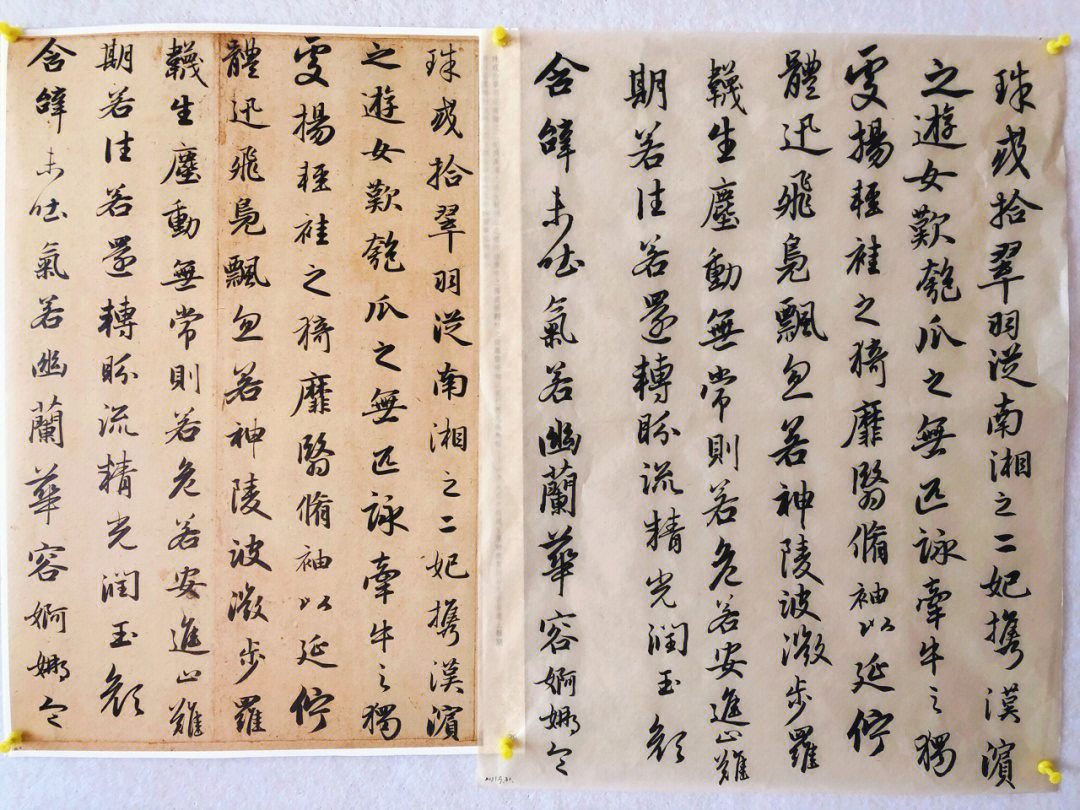 珠或拾翠羽從南湘之二妃攜漢濱
之遊女歎匏瓜之無匹詠牽牛之獨
處揚輕袿之猗靡翳脩袖以延佇
體迅飛鳧飄忽若神陵波微步羅
韈生塵動無常則若危若安進止難
期若往若還轉眄流精光潤玉顏
含辭未吐氣若幽蘭華容婀娜令
珠或拾翠羽從南湘之二妃攜漢濱
之遊女歎匏瓜之無匹詠牽牛之獨
處揚輕袿之猗靡翳脩袖以延佇
體迅飛鳧飄忽若神陵波微步羅
韈生塵動無常則若危若安進止難
期若往若還轉眄流精光潤玉顏
含辭未吐氣若幽蘭華容婀娜令